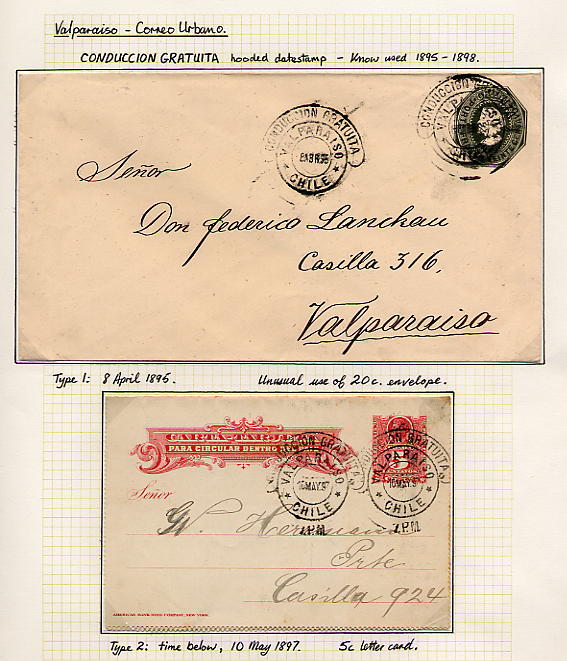 Valparaiso - Correo Urbano.
CONDUCCION GRATUITA hooded datestamp - Know used 1895 - 1898.
CONDUCCION GRATUITA
VALPARAISO
8 ABR 95
CHILE
CONDUCCION
VALPARAISO
CHILE
Señor
Don federico Lanckau
Casilla 316,
Valparaiso
Type 1: 8 April 1895. Unusual use of 20c. envelope.
CARTA-TARJETA
PARA CIRCULAR DENTRO
CONDUCCION GRATUITA
VALPARAISO
10 MAY 97
CHILE
1 P.M
CONDUCCION GRATUITA
VALPARAISO
10 MAY 97
CHILE
1 P.M
CENTAVOS
Señor
W. Hermann
Pete
Casilla 924
AMERICAN BANK NOTE COMPANY, NEW YORK.
Type 2: time below, 10 May 1897. 5c letter card.